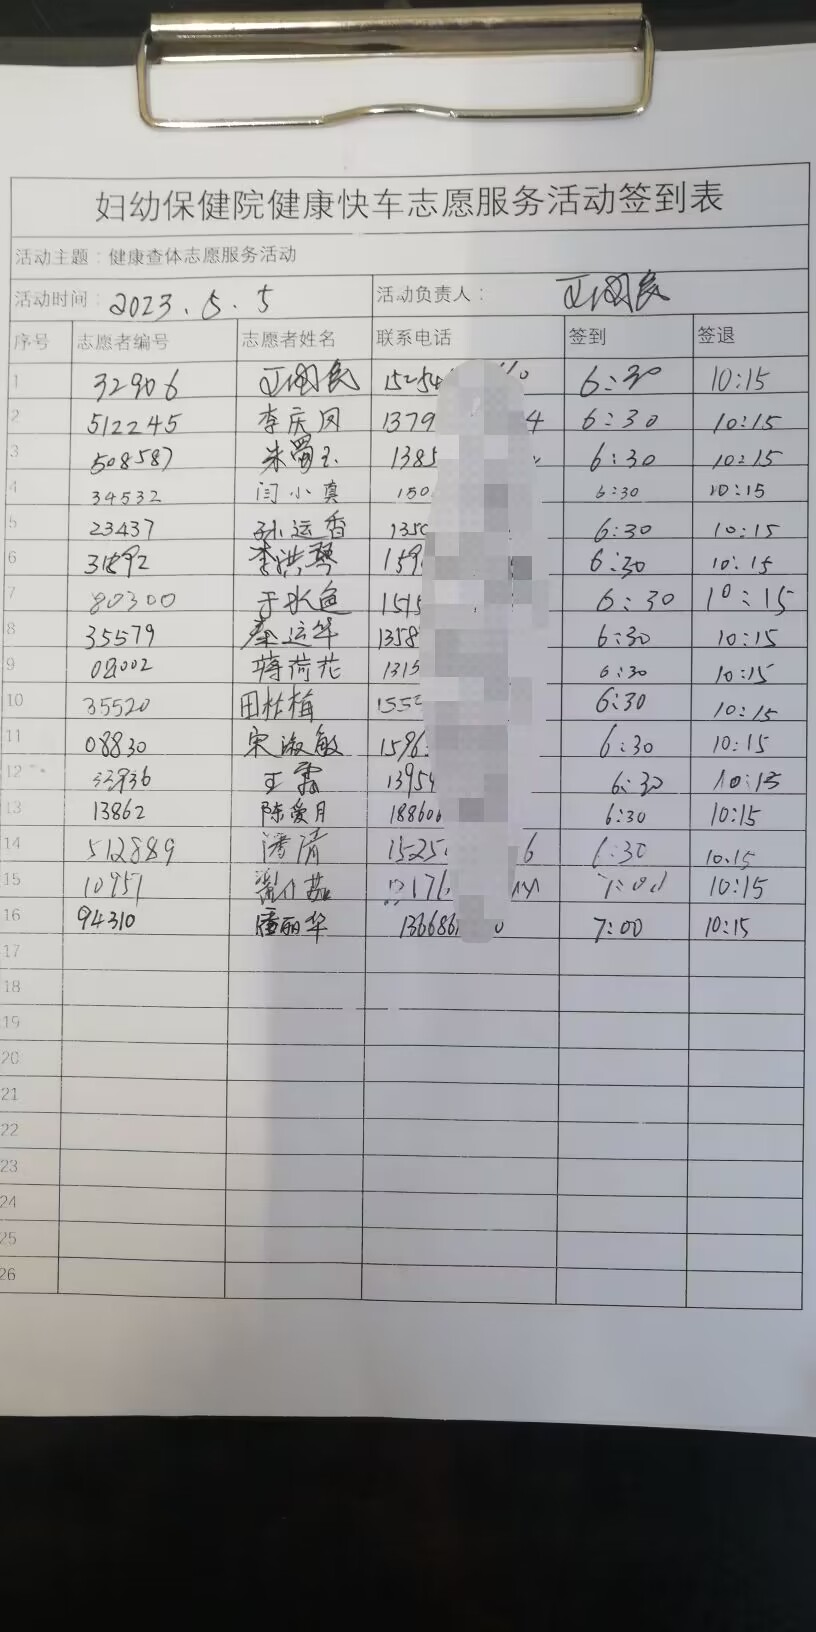 妇幼保健院健康快车志愿服务活动签到表
活动主题：健康查体志愿服务活动
活动时间：2023.5.5 活动负责人：王国民
序号 志愿者编号 志愿者姓名 联系电话 签到 签退
1 32906 王国民 15254 6:30 10:15
2 512245 李庆凤 1379 4 6:30 10:15
3 508587 朱蜀玉 1385 6:30 10:15
4 34532 闫小真 150 6:30 10:15
5 23437 孙运香 1350 6:30 10:15
6 31892 李洪琴 159 6:30 10:15
7 80300 于水鱼 1515 6:30 10:15
8 35579 秦运华 1358 6:30 10:15
9 08002 蒋荷花 1315 6:30 10:15
10 35520 田桂梅 155 6:30 10:15
11 08830 宋淑敏 1596 6:30 10:15
12 王霞 13954 6:30 10:15
13 13862 陈爱月 188606 6:30 10:15
14 512889 潘清 1525 6 6:30 10:15
15 10957 176 7:00 10:15
16 94310 潘丽华 136686 0 7:00 10:15
17
18
19
20
21
22
23
24
25
26